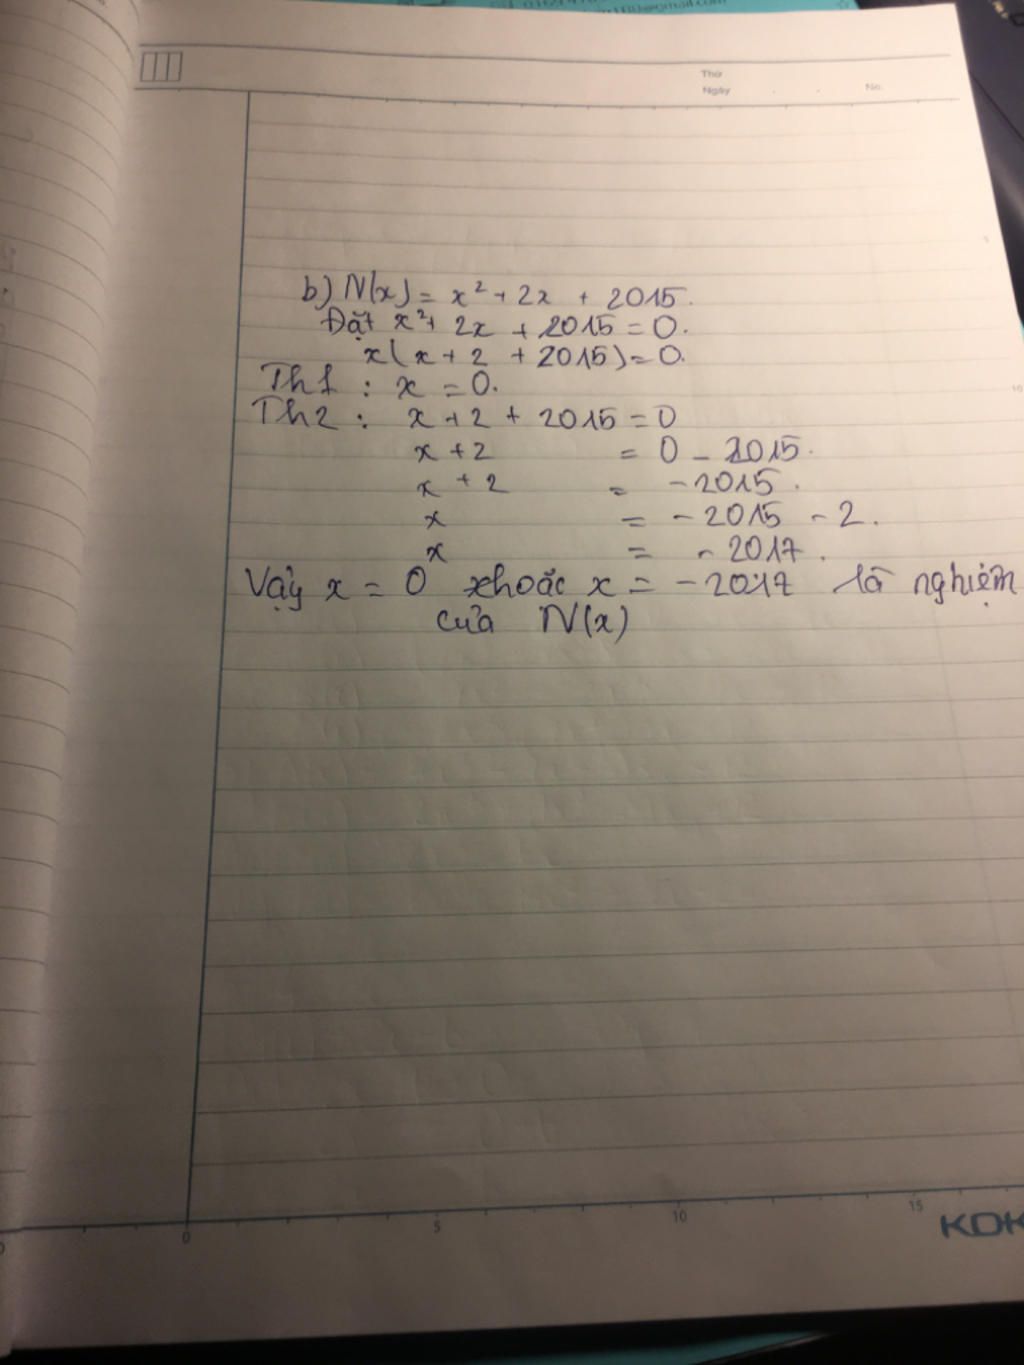 @gmail.com
Thứ
Ngày
No.
b) N(x) = x² + 2x + 2015.
Đặt x² + 2x + 2015 = 0.
x(x + 2 + 2015) = 0.
Th1 : x = 0.
Th2 : x + 2 + 2015 = 0
x + 2 = 0 - 2015.
x + 2 = -2015.
x = -2015 - 2.
x = -2017.
Vậy x = 0 xhoặc x = -2017 là nghiệm
của N(x)
10
0 5 10 15
KOK